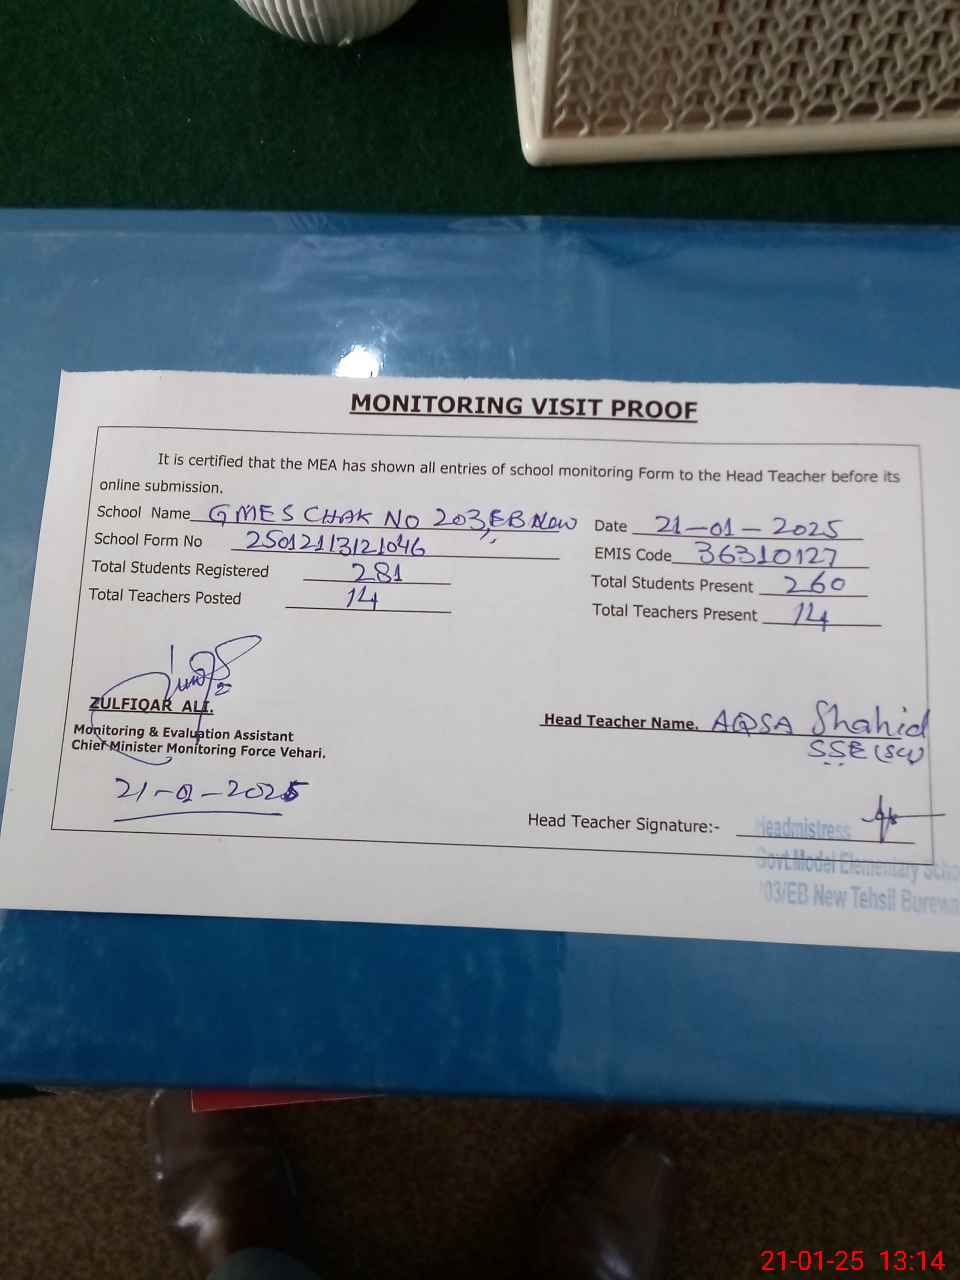 MONITORING VISIT PROOF
It is certified that the MEA has shown all entries of school monitoring Form to the Head Teacher before its
online submission.
School Name GMES CHAK NO 203,EB New Date 21-01-2025
School Form No 25012113121046 EMIS Code 36310127
Total Students Registered 281 Total Students Present 260
Total Teachers Posted 14 Total Teachers Present 14
ZULFIQAR ALI.
Monitoring & Evaluation Assistant
Chief Minister Monitoring Force Vehari.
21-01-2025
Head Teacher Name. AQSA Shahid
SSE (Sci)
Head Teacher Signature:-
Headmistress
Govt.Model Elementary
03/EB New Tehsil
21-01-25 13:14